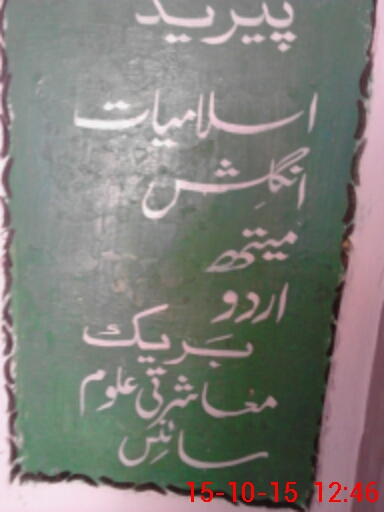 پیریڈ
اسلامیات
انگلش
میتھ
اردو
بریک
معاشرتی علوم
سائنس
15-10-15 12:46